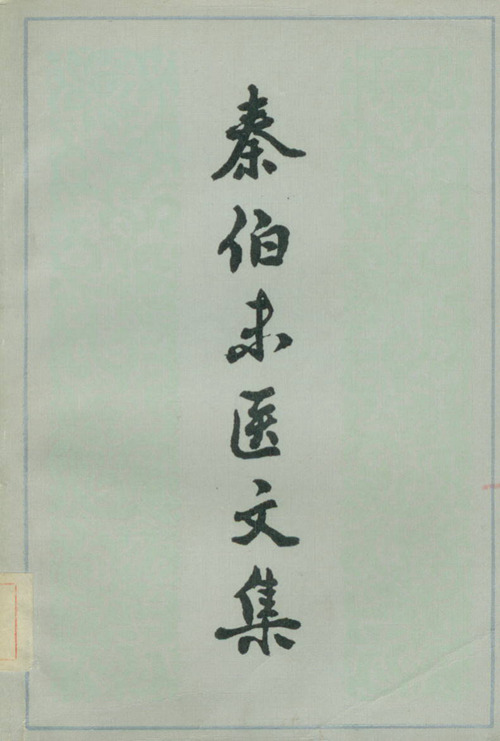 秦伯未医文集